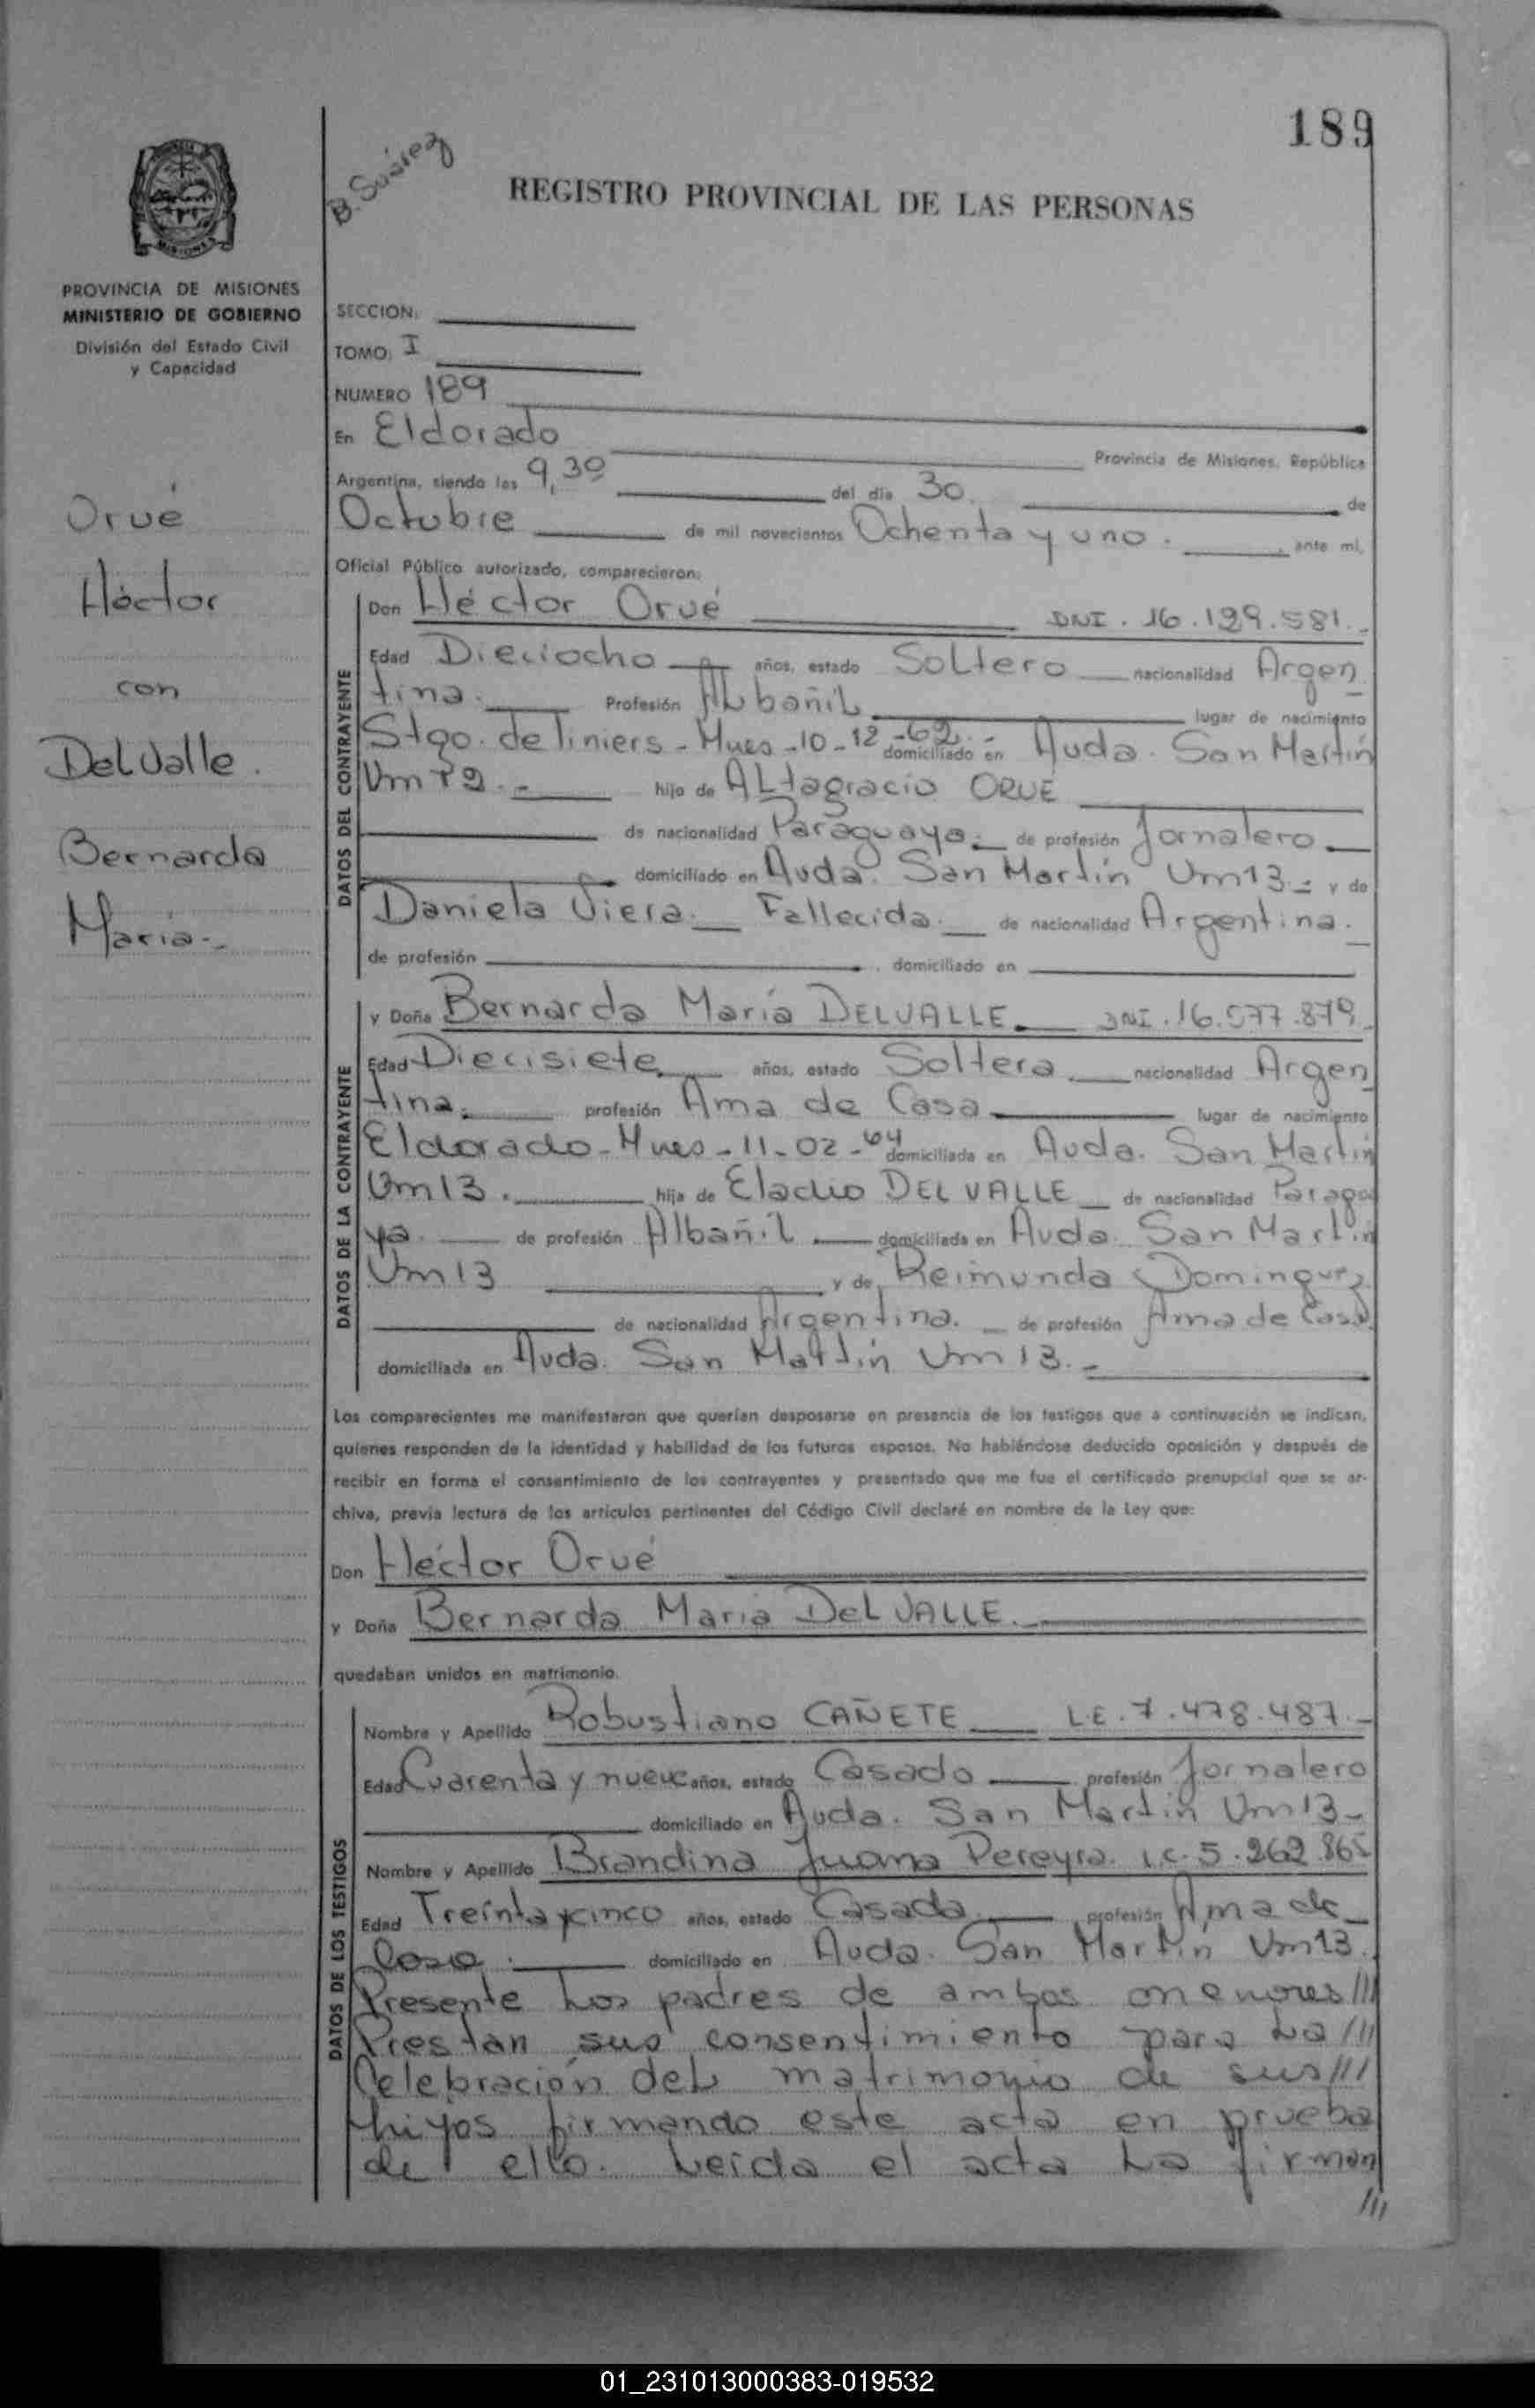 189
B. Suárez
REGISTRO PROVINCIAL DE LAS PERSONAS
MISIONES
PROVINCIA DE MISIONES
MINISTERIO DE GOBIERNO
División del Estado Civil
y Capacidad
SECCION:
TOMO: I
NUMERO 189
En Eldorado Provincia de Misiones, República
Argentina, siendo las 9,30 del día 30. de
Octubre de mil novecientos Ochenta y uno. ante mí,
Oficial Público autorizado, comparecieron:
Orué
Héctor
con
Del Valle.
Bernarda
María.-
DATOS DEL CONTRAYENTE
Don Héctor Orué DNI. 16.129.581.-
Edad Dieciocho años, estado Soltero nacionalidad Argen
tina. Profesión Albañil lugar de nacimiento
Stgo. de Liniers - Mnes - 10-12-62.- domiciliado en Avda. San Martín
Km 12.- hijo de Altagracio ORUÉ
de nacionalidad Paraguaya. de profesión Jornalero
domiciliado en Avda. San Martín Km13 y de
Daniela Viera. Fallecida. de nacionalidad Argentina.
de profesión domiciliado en
DATOS DE LA CONTRAYENTE
y Doña Bernarda María DELVALLE. DNI. 16.577.879.
Edad Diecisiete años, estado Soltera nacionalidad Argen
tina. profesión Ama de Casa lugar de nacimiento
Eldorado - Mnes - 11-02-64 domiciliada en Avda. San Martín
Km13. hija de Eladio DEL VALLE de nacionalidad Paragua
ya. de profesión Albañil domiciliada en Avda. San Martin
Km13 y de Reimunda Dominguez
de nacionalidad Argentina. de profesión Ama de Casa.
domiciliada en Avda. San Martín Km13.-
Los comparecientes me manifestaron que querían desposarse en presencia de los testigos que a continuación se indican,
quienes responden de la identidad y habilidad de los futuros esposos. No habiéndose deducido oposición y después de
recibir en forma el consentimiento de los contrayentes y presentado que me fue el certificado prenupcial que se ar-
chiva, previa lectura de los artículos pertinentes del Código Civil declaré en nombre de la Ley que:
Don Héctor Orué
y Doña Bernarda María Del VALLE.
quedaban unidos en matrimonio.
DATOS DE LOS TESTIGOS
Nombre y Apellido Robustiano CAÑETE L.E. 7.478.487.-
Edad Cuarenta y nueve años, estado Casado profesión Jornalero
domiciliado en Avda. San Martin Km13-
Nombre y Apellido Brandina Juana Pereyra. L.C. 5.262.865
Edad Treinta y cinco años, estado Casada profesión Ama de
Casa. domiciliado en Avda. San Martín Km13.
Presente los padres de ambos menores///
Prestan sus consentimiento para la///
Celebración del matrimonio de sus///
hijos firmando este acta en prueba
de ello. Leida el acta la firman
///
01_231013000383-019532